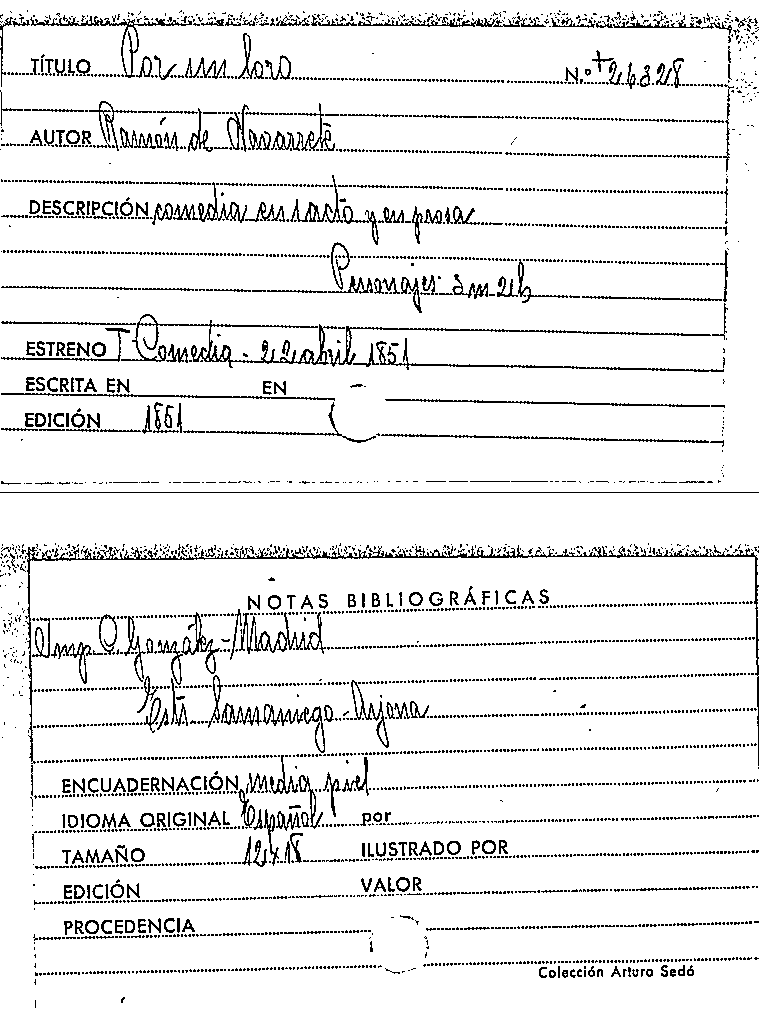 TÍTULO Por un loro N.º +26328
AUTOR Ramón de Navarrete
DESCRIPCIÓN comedia en 1 acto y en prosa
Personajes: 3m 2h
ESTRENO T Comedia - 22 abril 1851
ESCRITA EN EN
EDICIÓN 1851
NOTAS BIBLIOGRÁFICAS
Imp C. González - Madrid
Estr. Samaniego - Arjona
ENCUADERNACIÓN media piel
IDIOMA ORIGINAL Español por
TAMAÑO 12x18 ILUSTRADO POR
EDICIÓN VALOR
PROCEDENCIA
Colección Arturo Sedó